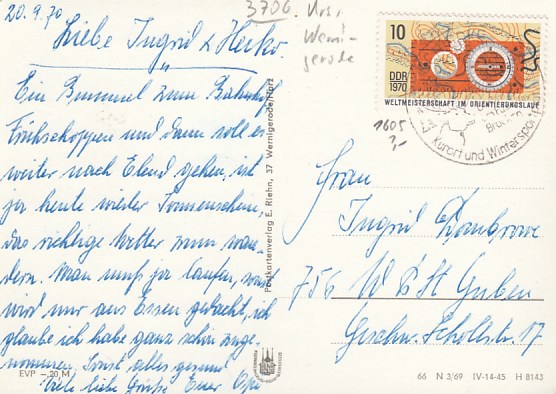 20.9.70
Liebe Ingrid & Heiko.
Ein Bummel zum Bahnhof,
Frühschoppen und dann soll es
weiter nach Elend gehen, ist
ja heute wieder Sonnenschein,
das richtige Wetter zum wan-
dern. Man muß ja laufen, sonst
wird nur ans Essen gedacht, ich
glaube ich habe ganz schön zuge-
nommen. Sonst alles gesund
Viele liebe Grüße Euer Opa
EVP –,20 M
Postkartenverlag E. Riehn, 37 Wernigerode/Harz
3706. Urs,
Werni-
gerode
1605
3,-
10
DDR
1970
WELTMEISTERSCHAFT IM ORIENTIERUNGSLAUF
Kurort und Wintersport
Frau
Ingrid
756 W P St Guben
Geschw. Schollstr. 17
66 N 3/69 IV-14-45 H 8143